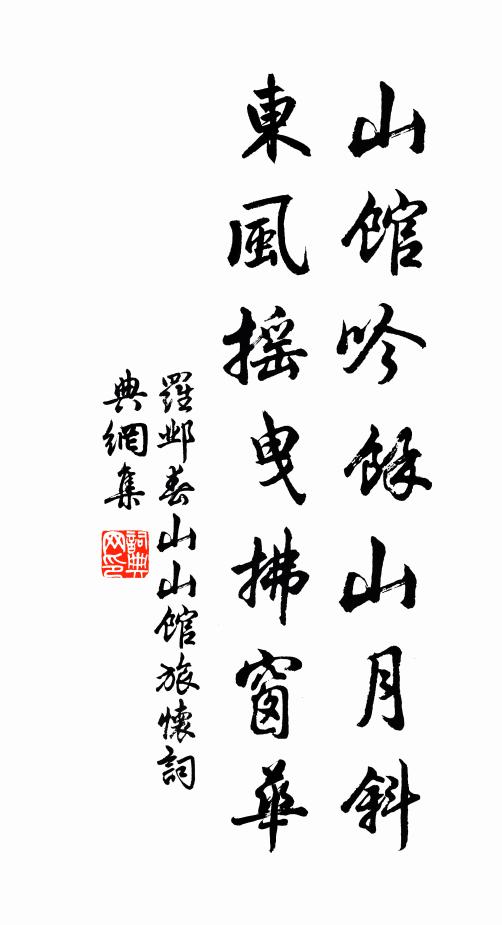 山館吟餘山月斜
東風搖曳拂窗華
羅鄴春山山館旅懷詞
典網集
詞典网印